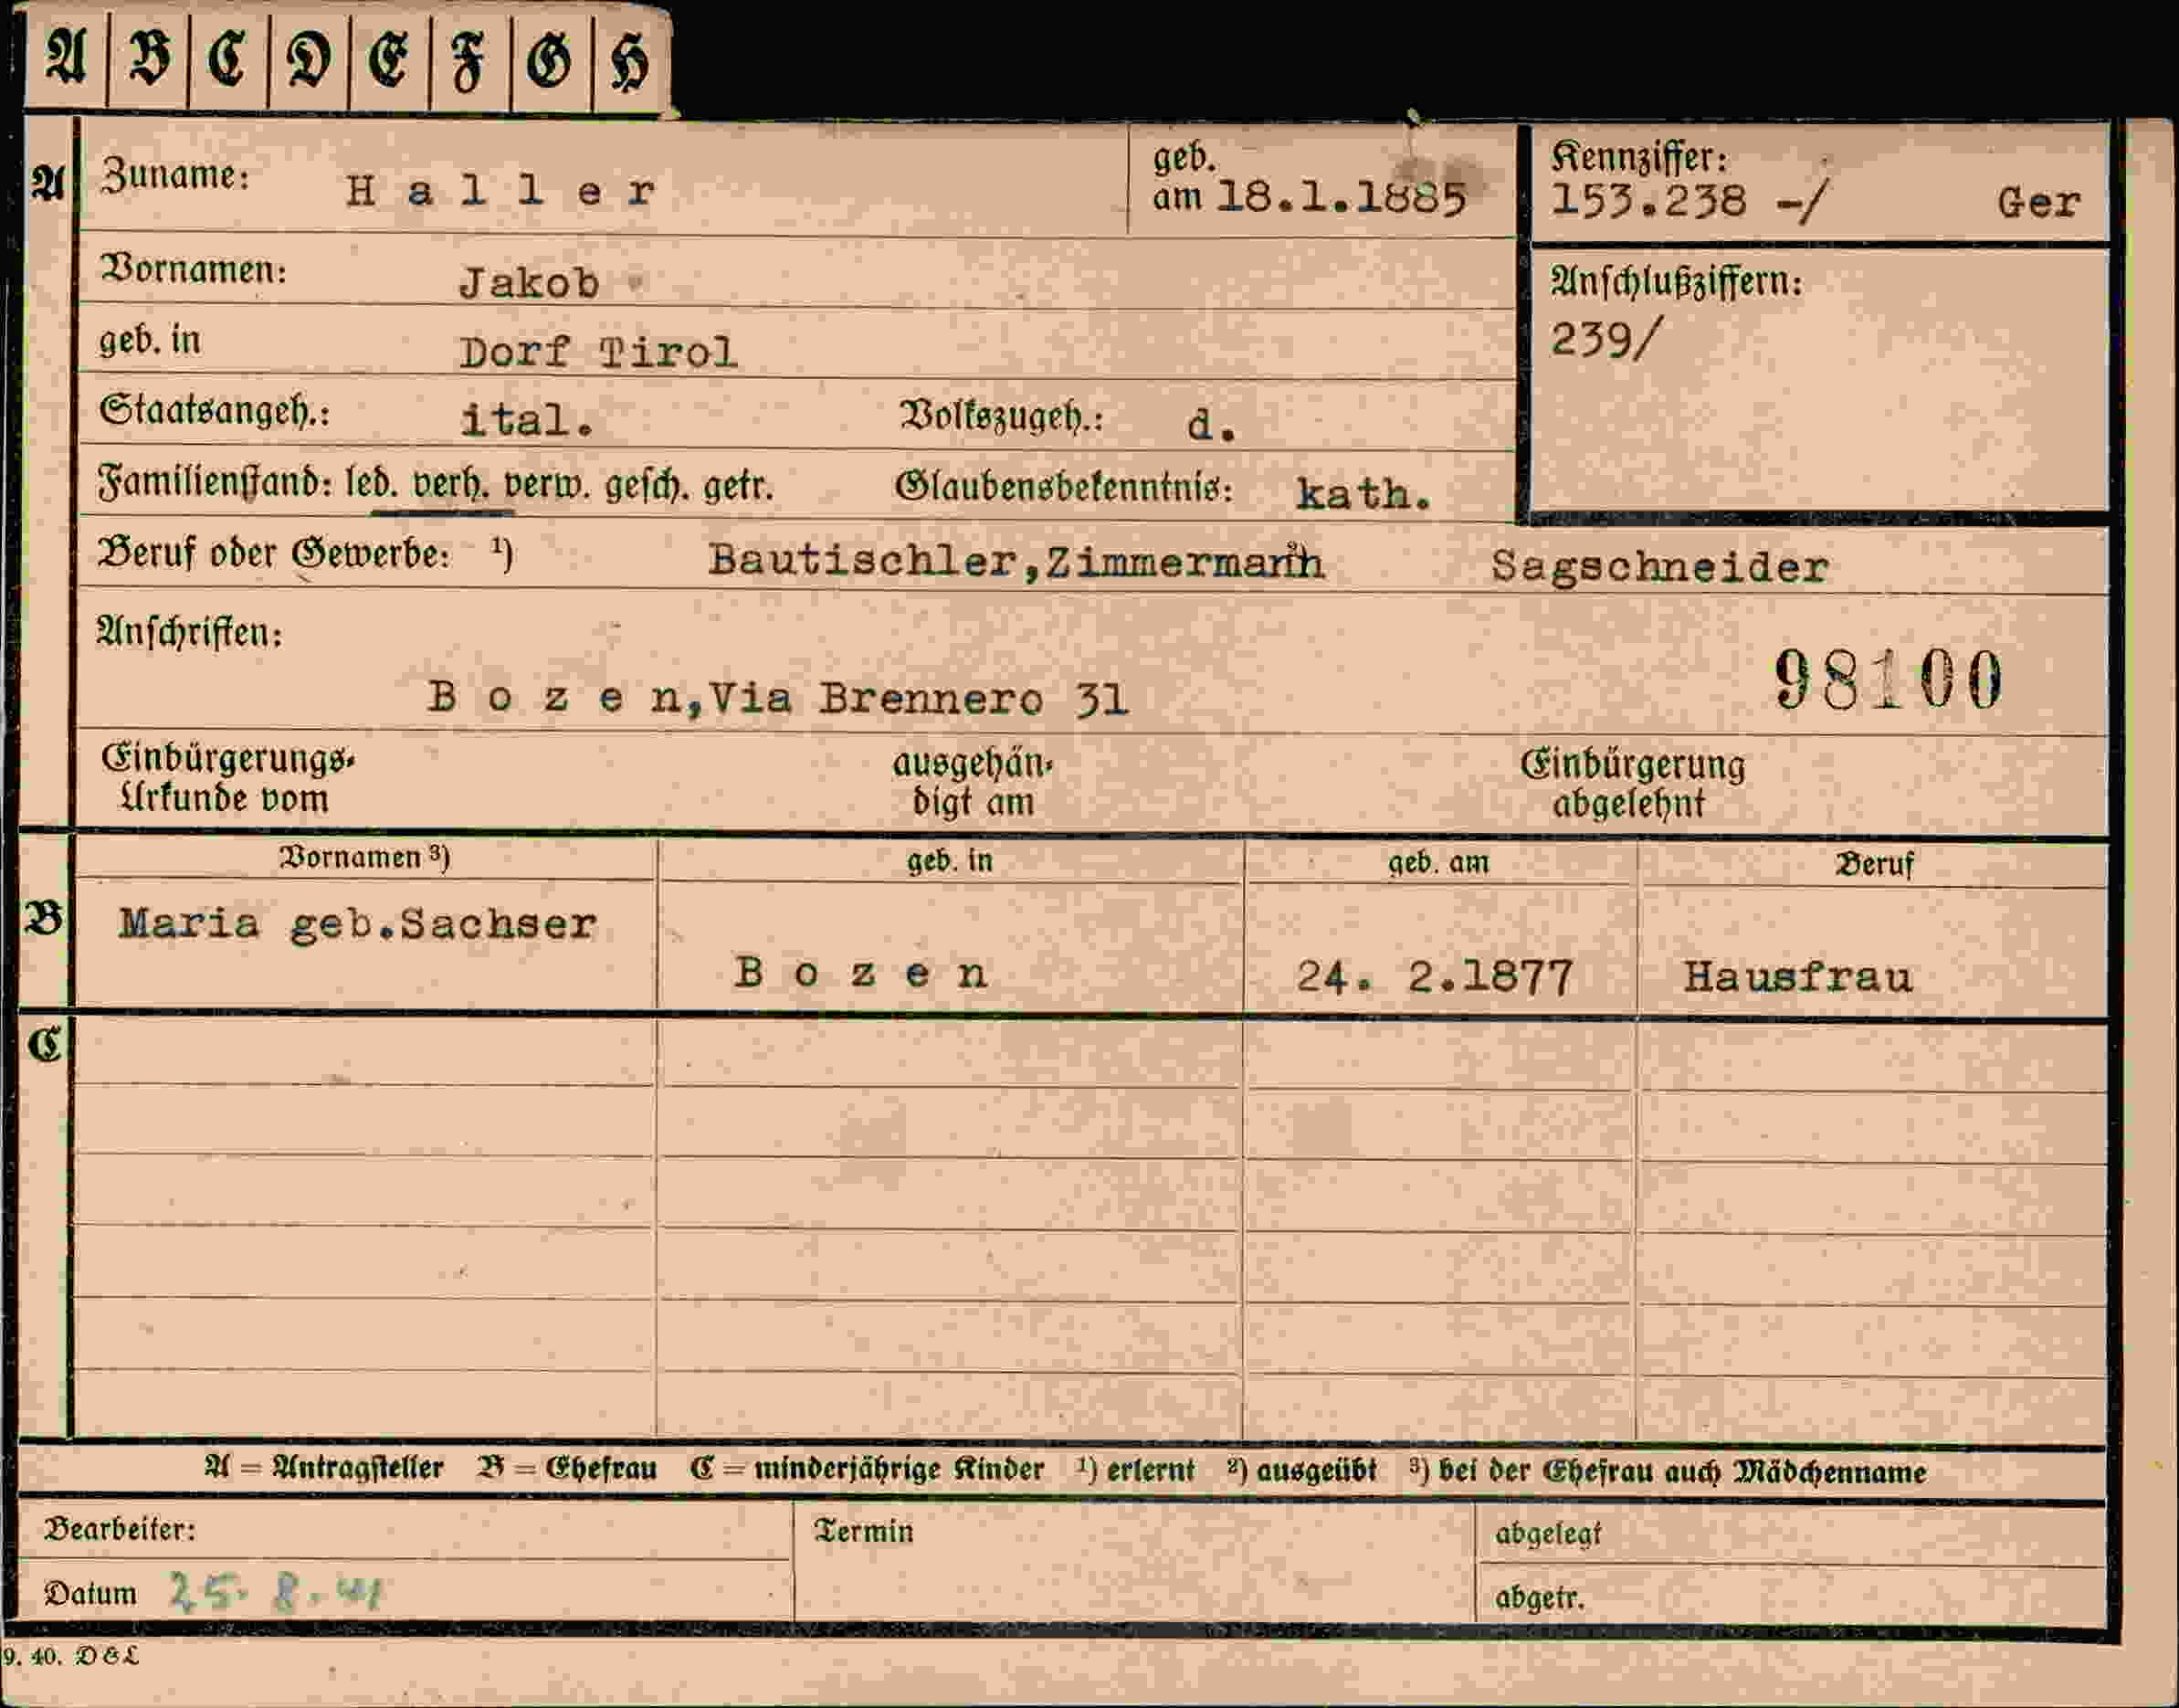 A B C D E F G H
A Zuname: H a l l e r geb. am 18.1.1885 Kennziffer: 153.238 -/ Ger
Vornamen: Jakob Anschlußziffern:
geb. in Dorf Tirol 239/
Staatsangeh.: ital. Volkszugeh.: d.
Familienstand: led. verh. verw. gesch. getr. Glaubensbekenntnis: kath.
Beruf oder Gewerbe: ¹) Bautischler,Zimmermann ²) Sagschneider
Anschriften:
98100
B o z e n,Via Brennero 31
Einbürgerungs- ausgehän- Einbürgerung
Urkunde vom digt am abgelehnt
Vornamen ³) geb. in geb. am Beruf
B Maria geb.Sachser
B o z e n 24. 2.1877 Hausfrau
C
A = Antragsteller B = Ehefrau C = minderjährige Kinder ¹) erlernt ²) ausgeübt ³) bei der Ehefrau auch Mädchenname
Bearbeiter: Termin abgelegt
Datum 25. 8. 41 abgetr.
9. 40. D&L